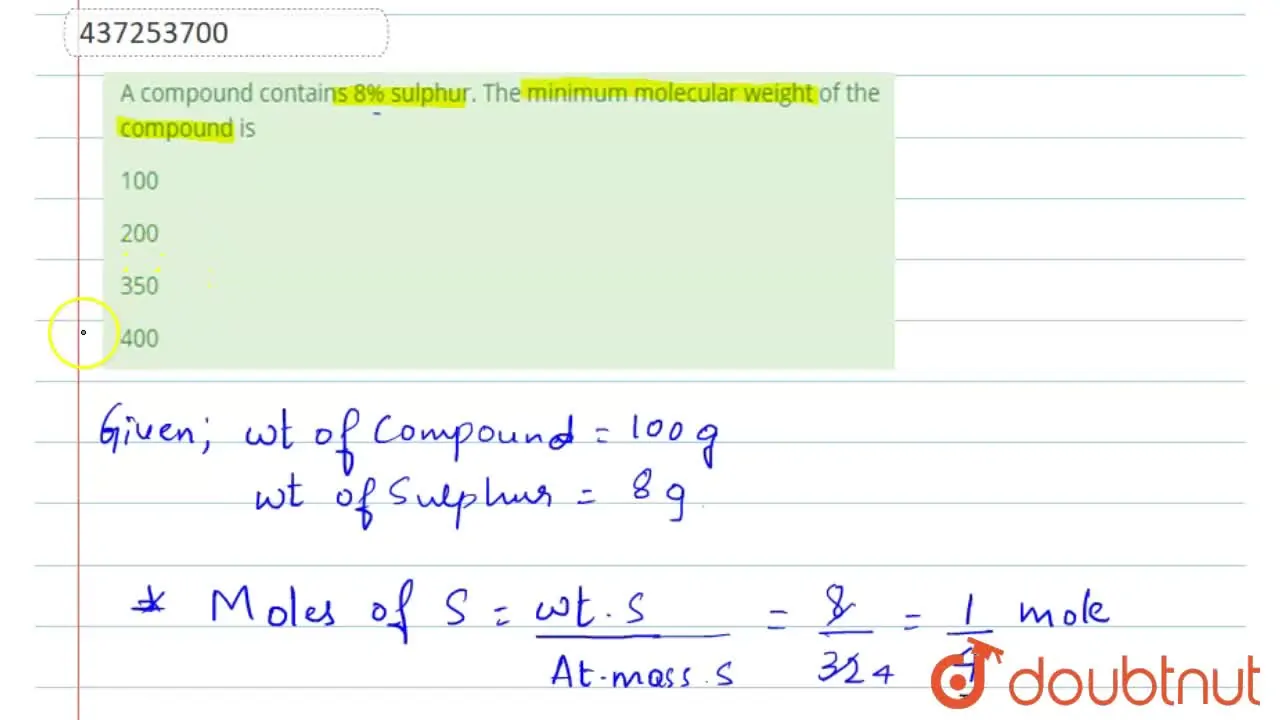 437253700
A compound contains 8% sulphur. The minimum molecular weight of the
compound is
100
200
350
400
Given; wt of Compound = 100 g
wt of Sulphur = 8 g
* Moles of S = wt. S / At. mass. S = 8 / 32 4 = 1 / 4 mole
doubtnut